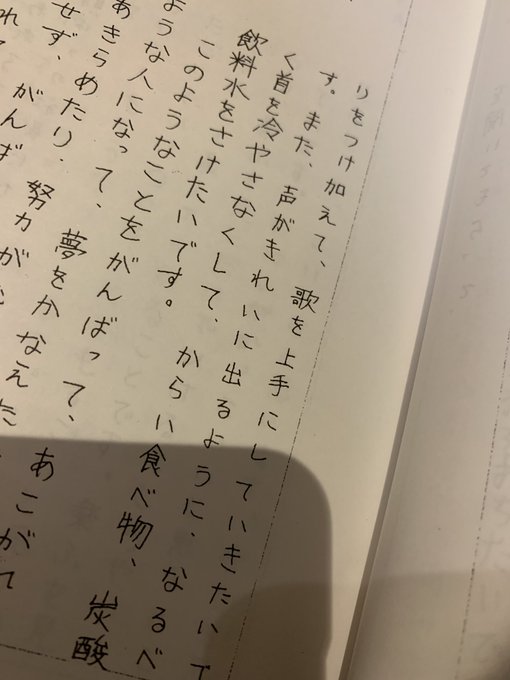 りをつけ加えて、歌を上手にしていきたいで
す。また、声がきれいに出るように、なるべ
く首を冷やさなくして、からい食べ物、炭酸
飲料水をさけたいです。
このようなことをがんばって、あこがれ
ような人になって、夢をかなえた
あきらめたり、努力が
せず、がんば
れて